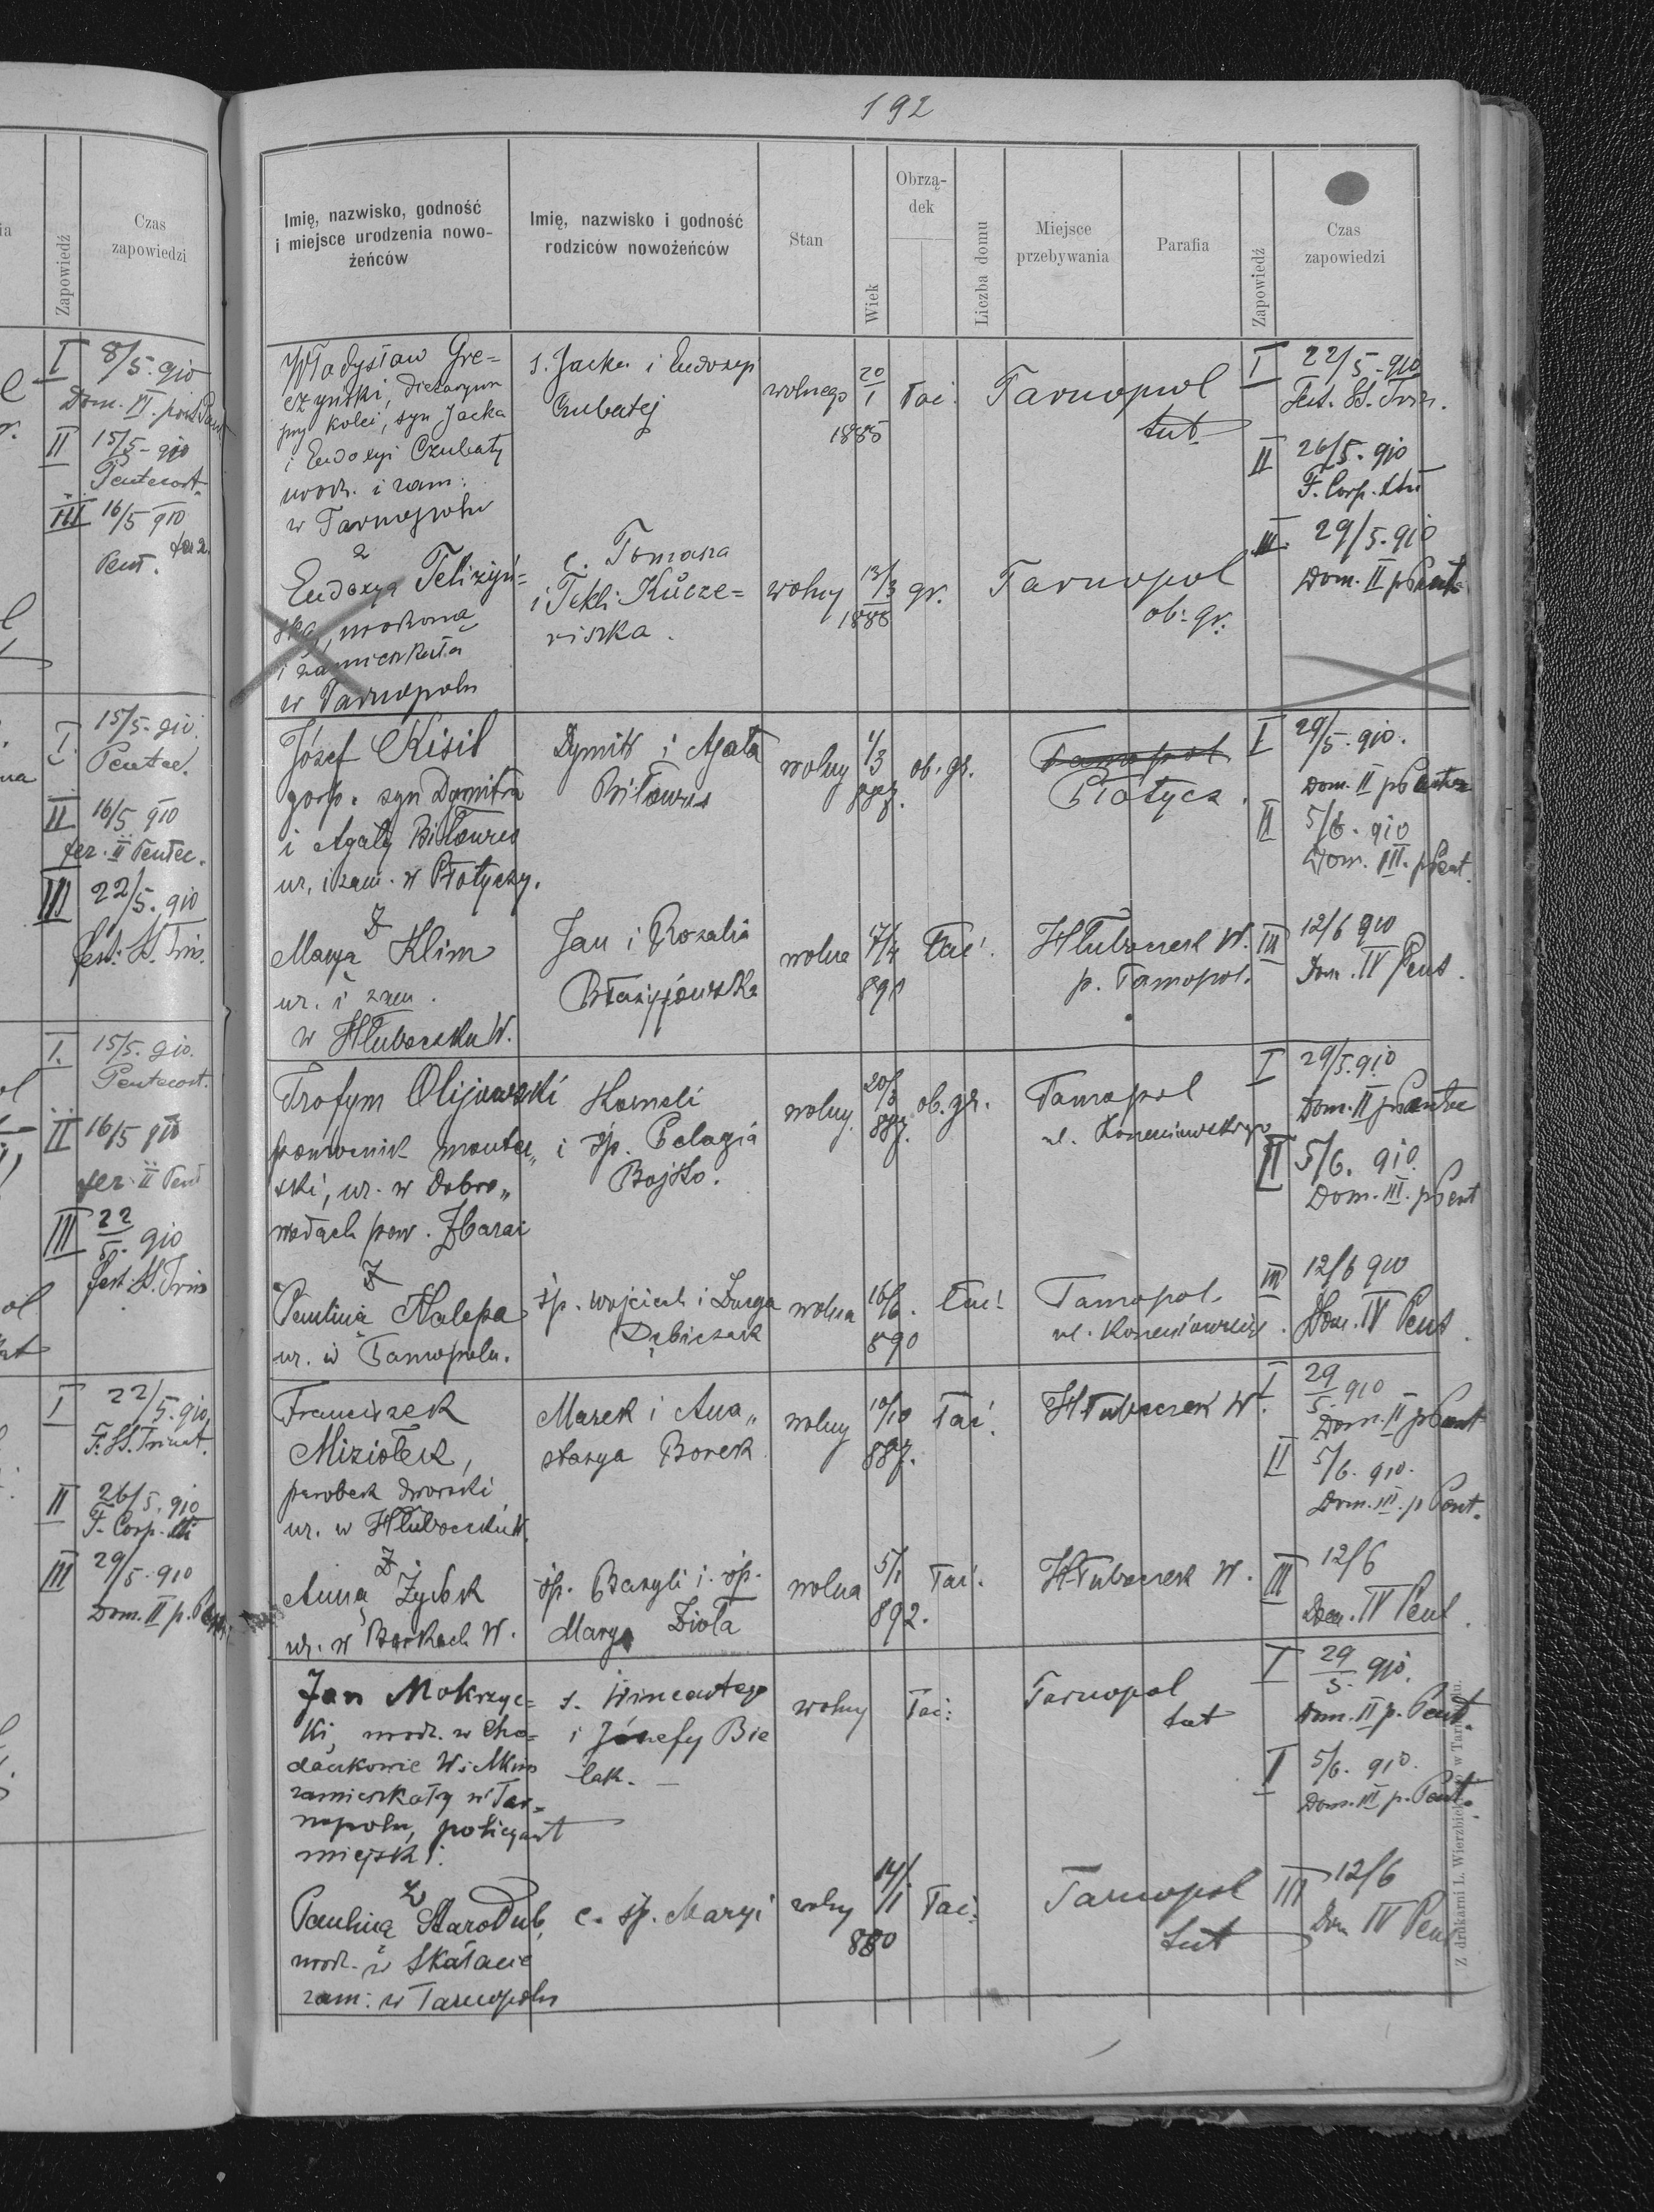 192
Imię, nazwisko, godność
i miejsce urodzenia nowo-
żeńców
Imię, nazwisko i godność
rodziców nowożeńców
Stan
Wiek
Obrzą-
dek
Liczba domu
Miejsce
przebywania
Parafia
Zapowiedź
Czas
zapowiedzi
Władysław Gre=
czyński, dietaryusz
przy kolei, syn Jacka
i Eudoxyi Czubaty
urodz. i zam:
w Tarnopolu
s. Jacka i Eudoxyi
Czubatej
wolnego
20/1
1885
łac.
Tarnopol
tut
I 22/5. 910
Fest. SS. Trin.
II 26/5. 910
F. Corp. Xti
III. 29/5. 910
Dom. II p Pent.
z
Eudoxyą Teliżyń=
ską, urodzoną
i zamieszkałą
w Tarnopolu
c. Tomasza
i Tekli Kucze=
riszka.
wolny
13/3
1888
gr.
Tarnopol
ob. gr.
Józef Kisil
gosp. syn Dymitra
i Agaty Biłowus
ur. i zam. w Płotyczy.
Dymitr i Agata
Biłowus
wolny
1/3
887.
ob. gr.
Tarnopol
Płotycz.
I 29/5. 910.
Dom. II p Pentec
II 5/6. 910
Dom. III. p Pent.
Z
Maryą Klim
ur. i zam.
w Hłuboczku W.
Jan i Rozalia
wolna
891
łac.
Hłuboczek W.
p. Tarnopol.
III 12/6 910
Dom. IV Pent.
Trofym Olijowski
pomocnik monter„
ski, ur. w Dobro„
wodach pow. Zbaraż
Korneli
i śp. Pelagia
Bojko.
wolny.
20/3
887.
ob. gr.
Tarnopol
ul.
I 29/5. 910
Dom. II p Pentec
II 5/6. 910.
Dom. III. p Pent
Z
Pauliną Nalepa
ur. w Tarnopolu.
śp. Wojciech i
Dębiczak
wolna
16/6.
890
łac.
Tarnopol.
ul.
III 12/6 910
Dom. IV Pent.
Franciszek
Miziołek,
parobek dworski
ur. w Hłuboczku W.
Marek i Ana„
stazya Borek
wolny
10/10
887.
łac.
Hłuboczek W.
I 29/5. 910
Dom. II p Pent
II 5/6. 910.
Dom. III. p Pent.
Z
Anną Żybek
ur. w Borkach W.
śp. Bazyli i śp.
Marya Zioła
wolna
5/1
892.
łac.
Hłuboczek W.
III 12/6
Dom. IV Pent.
Jan Mokrzyc=
ki, urodz. w Cho=
daczkowie W.
zamieszkały w Tar=
nopolu, policyant
miejski.
s. Wincentego
i Józefy Bie
lak. —
wolny
łac.
Tarnopol
tut
I 29/5. 910.
Dom. II p. Pent.
I 5/6. 910.
Dom. III p. Pent.
z
Pauliną Starodub,
urodz. w Skałacie
zam: w Tarnopolu
c. śp. Maryi
wolny
880
łac.
Tarnopol
tut
III 12/6
Dom IV Pent
Czas
zapowiedzi
Zapowiedź
I 8/5. 910
II 15/5 - 910
Pentecost.
III 16/5 910
Pent.
I. 15/5. 910.
Pentec.
II 16/5 910
fer. II Pentec.
III 22/5. 910
Fest. SS. Trin.
I. 15/5. 910.
Pentecost.
II 16/5 910
fer. II Pent
III 22/5. 910
Fest. SS. Trin
I 22/5. 910,
F. SS. Trinit.
II 26/5. 910
F. Corp. Xti
III 29/5. 910
Dom. II p. Pent.